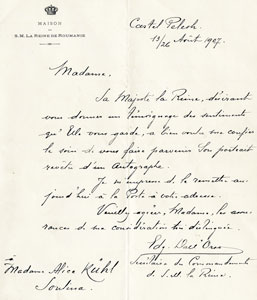 MAISON
DE
S. M. LA REINE DE ROUMANIE
Castel Pelesh
13/26 Août 1907.
Madame,
Sa Majesté la Reine, désirant
vous donner un témoignage des sentiments
qu'Elle vous garde, a bien voulu me confier
le soin de vous faire parvenir Son portrait
revêtu d'un Autographe.
Je m'empresse de le remettre au-
jourd'hui à la Poste à votre adresse.
Veuillez agréer, Madame, les assu-
rances de ma considération très distinguée.
Secrétaire des Commandements
de S. M. la Reine.
Madame Alice Kühl
Soulina.